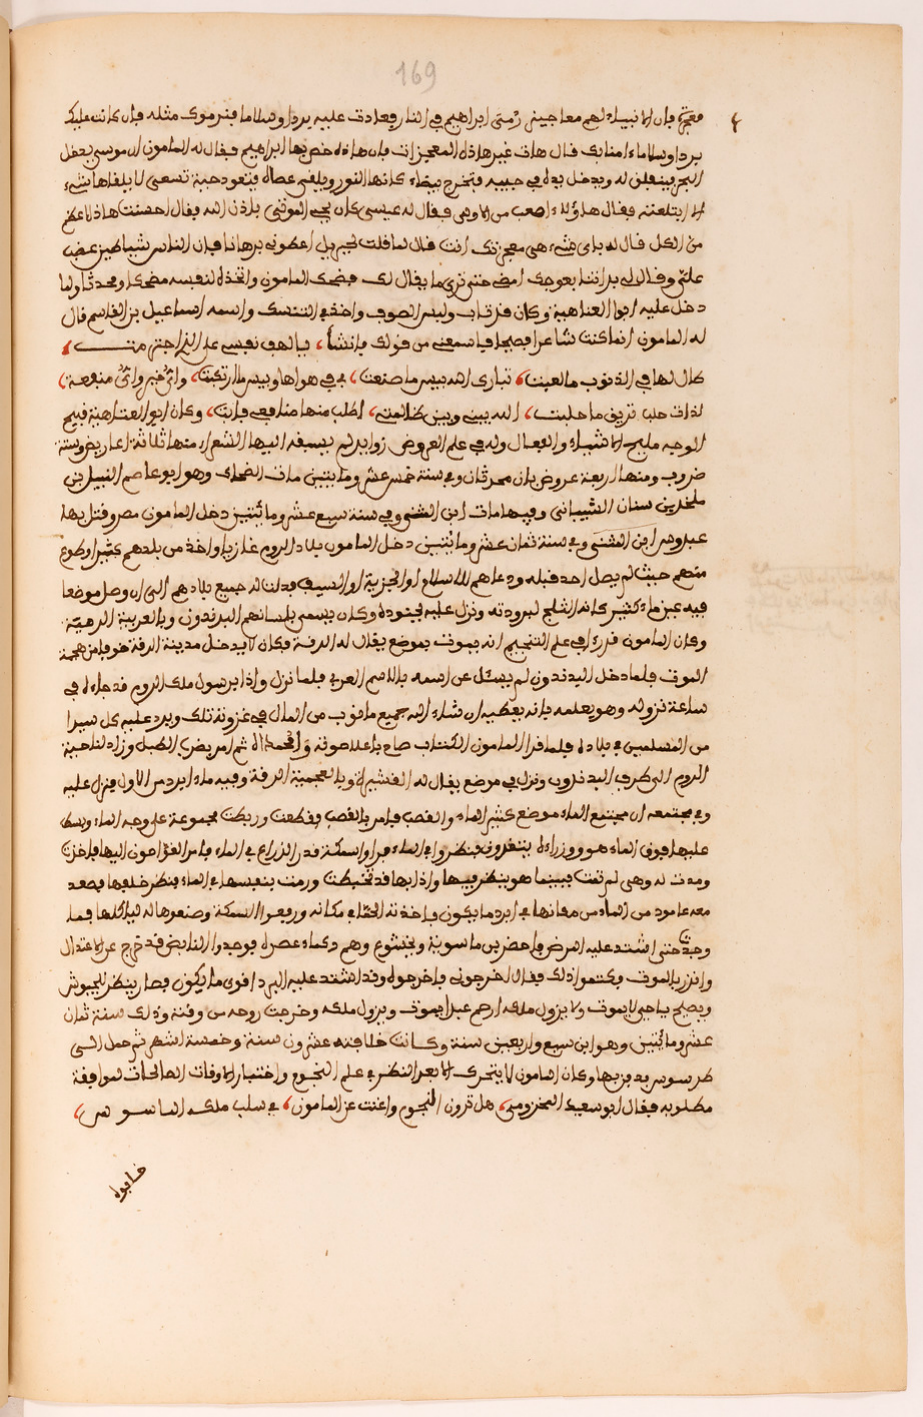 169
معجزة فإن الانبياء لهم معاجيني رُمي ابراهيم في النار فعادت عليه بردا وسلاما فنرموك مثله فإن كانت عليك
بردا وسلاما ءامنا بك قال هات غير هاذه المعجزات فإن هاذه خص بها ابراهيم فقال له المامون ان موسى يدخل
البحر فينفلق له ويدخل يده في جيبه فتخرج بيضاء كانها النور ويلقي عصاه فتعود حية تسعى لا يلقاها شيء
الا ابتلعته فقال هاؤلاء اصعب من الاولى فقال له عيسى كان يحيي الموتى بإذن الله فقال احسنت هاذا اعظم
من الكل قال له بأي شيء هي معجزتك انت قال لما قلت لجبريل اعطوني برهانا فإن الناس شياطين غضب
علي وقال لي بدأتنا بعوجك امض حتى ترى ما يقال لك فضحك المامون واتخذه لنفسه مضحكا ومحدثا ولما
دخل عليه ابو العتاهية وكان قد تاب ولبس الصوف واخذ في التنسك واسمه اسماعيل بن القاسم قال
له المامون انما كنت شاعرا فصيحا فاسمعني من قولك فانشأ، يا لهف نفسي على الذي اجترمت
كان لها في الذنوب ما لعبت، تبارك الله بيس ما صنعت، في هواها وبيس ما ارتكبت، واي خير واي منفعة
لذات حلب تريق ما حلبت، الله بيني وبين ظالمتي، اطلب منها صنا فعي فابت، وكان ابو العتاهية قبيح
الوجه مليح الاشياء والفعال وله في علم العروض زوايد لم يسبقه اليها الشعراء منها ثلاثة اعاريض وستة
ضروب ومنها اربعة عروضان محدثان وفي سنة خمس عشر ومايتين مات الضحاك وهو ابو عاصم النبيل بن
مخلد بن سنان الشيباني وفيها مات ابن المثنى وفي سنة سبع عشر ومائتين دخل المامون مصر وقتل بها
عبدوس ابن المثنى وفي سنة ثمان عشر ومائتين دخل المامون بلاد الروم غازيا واخذ من بلدهم كثيرا وطوع
منهم حيث لم يصل احد قبله ودعاهم للاسلام او الجزية او السيف فدانت له جميع بلادهم الى ان وصل موضعا
فيه عين ماء كثير كانه الثلج لبرودته ونزل عليه بجنوده وكان يسمى بلسانهم البدندون وبالعربية الرقة
وكان المامون قد رءا في علم التنجيم انه يموت بموضع يقال له الرقة فكان لا يدخل مدينة الرقة خوفا من هجمة
الموت فلما دخل البدندون لم يسئل عن اسمه بالاسم العربي فلما نزل وإذا برسول ملك الروم قد جاءه في
ساعة نزوله وهو يعلمه بانه يعطيه ان شاء الله جميع ما ذهب من المال في غزوته تلك ويرد عليه كل اسير
من المسلمين في بلاده فلما قرا المامون الكتاب صاح باعلا صوته ثم امر بضرب الطبل وزاد لناحية
الروم الى طرف البدندون ونزل في موضع يقال له القشيرة وبالعجمية الرقة وفيه ماء ابرد من الاول فنزل عليه
وفي مجتمعه ان مجتمع الماء موضع كثير الماء والقصب فامر بالقصب فقطعت وربطت مجموعة على وجه الماء وبسط
عليها فوق الماء هو ووزراءه يتفرجون فنظروا في الماء فراوا سمكة قدر الذراع في الماء فامر الغواصون اليها فاخذت
ومدت له وهي لم تمت فبينما هو ينظر فيها وإذا بها قد تخبطت ورمت بنفسها في الماء فنظر خلفها فصعد
معه عامود من الماء من مقامها في ابرد ما يكون فاخذته الحما في مكانه ورفعوا السمكة وصنعوها له لياكلها فما
وجد حتى اشتد عليه المرض فاحضر بن ماسوية وبختيشوع وهم حكماء عصره فوجدوا النابض قد خرج عن الاعتدال
وانذر بالموت فكتموا ذلك فقال اخرجوني فاخرجوه وقد اشتد عليه البرد اقوى ما يكون فصار ينظر للجيوش
ويصيح يا حي لا يموت ولا يزول ملكه ارحم عبدا يموت ويزول ملكه وخرجت روحه من وقته وذلك سنة ثمان
عشر ومائتين وهو ابن سبع واربعين سنة وكانت خلافته عشرون سنة وخمسة اشهر ثم حمل الى
طرسوس ودفن بها وكان المامون لا يتحرك الا بعد النظر في علم النجوم واختيار الاوقات الصالحات لموافقة
مطلوبه فقال ابو سعيد المخزومي، هل ترون النجوم واغنت عن المامون، في سلب ملكه الماسوس
خابوه